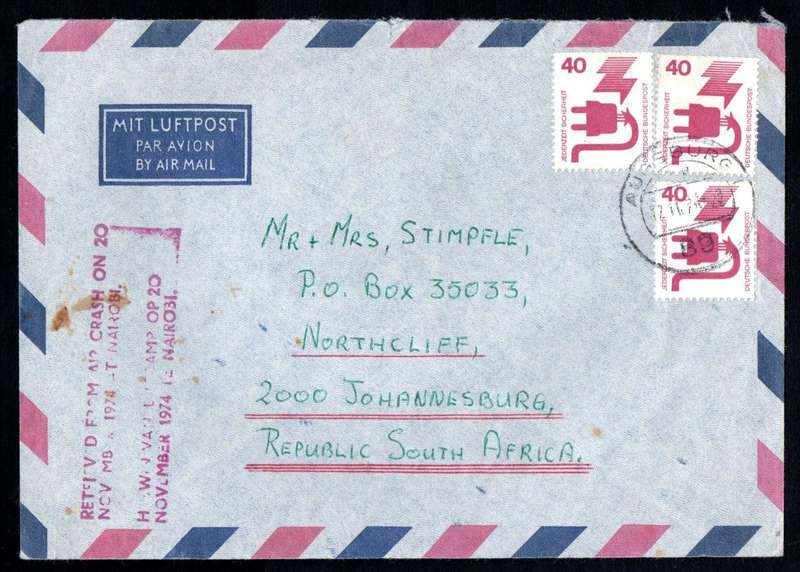 MIT LUFTPOST
PAR AVION
BY AIR MAIL
40
JEDERZEIT SICHERHEIT
DEUTSCHE BUNDESPOST
40
JEDERZEIT SICHERHEIT
DEUTSCHE BUNDESPOST
40
JEDERZEIT SICHERHEIT
DEUTSCHE BUNDESPOST
AUGSBURG
89
MR + MRS, STIMPFLE,
P.O. BOX 35033,
NORTHCLIFF,
2000 JOHANNESBURG,
REPUBLIC SOUTH AFRICA.
CRASH ON 20
1974 NAIROBI.
OP 20
NOVEMBER 1974 TE NAIROBI.